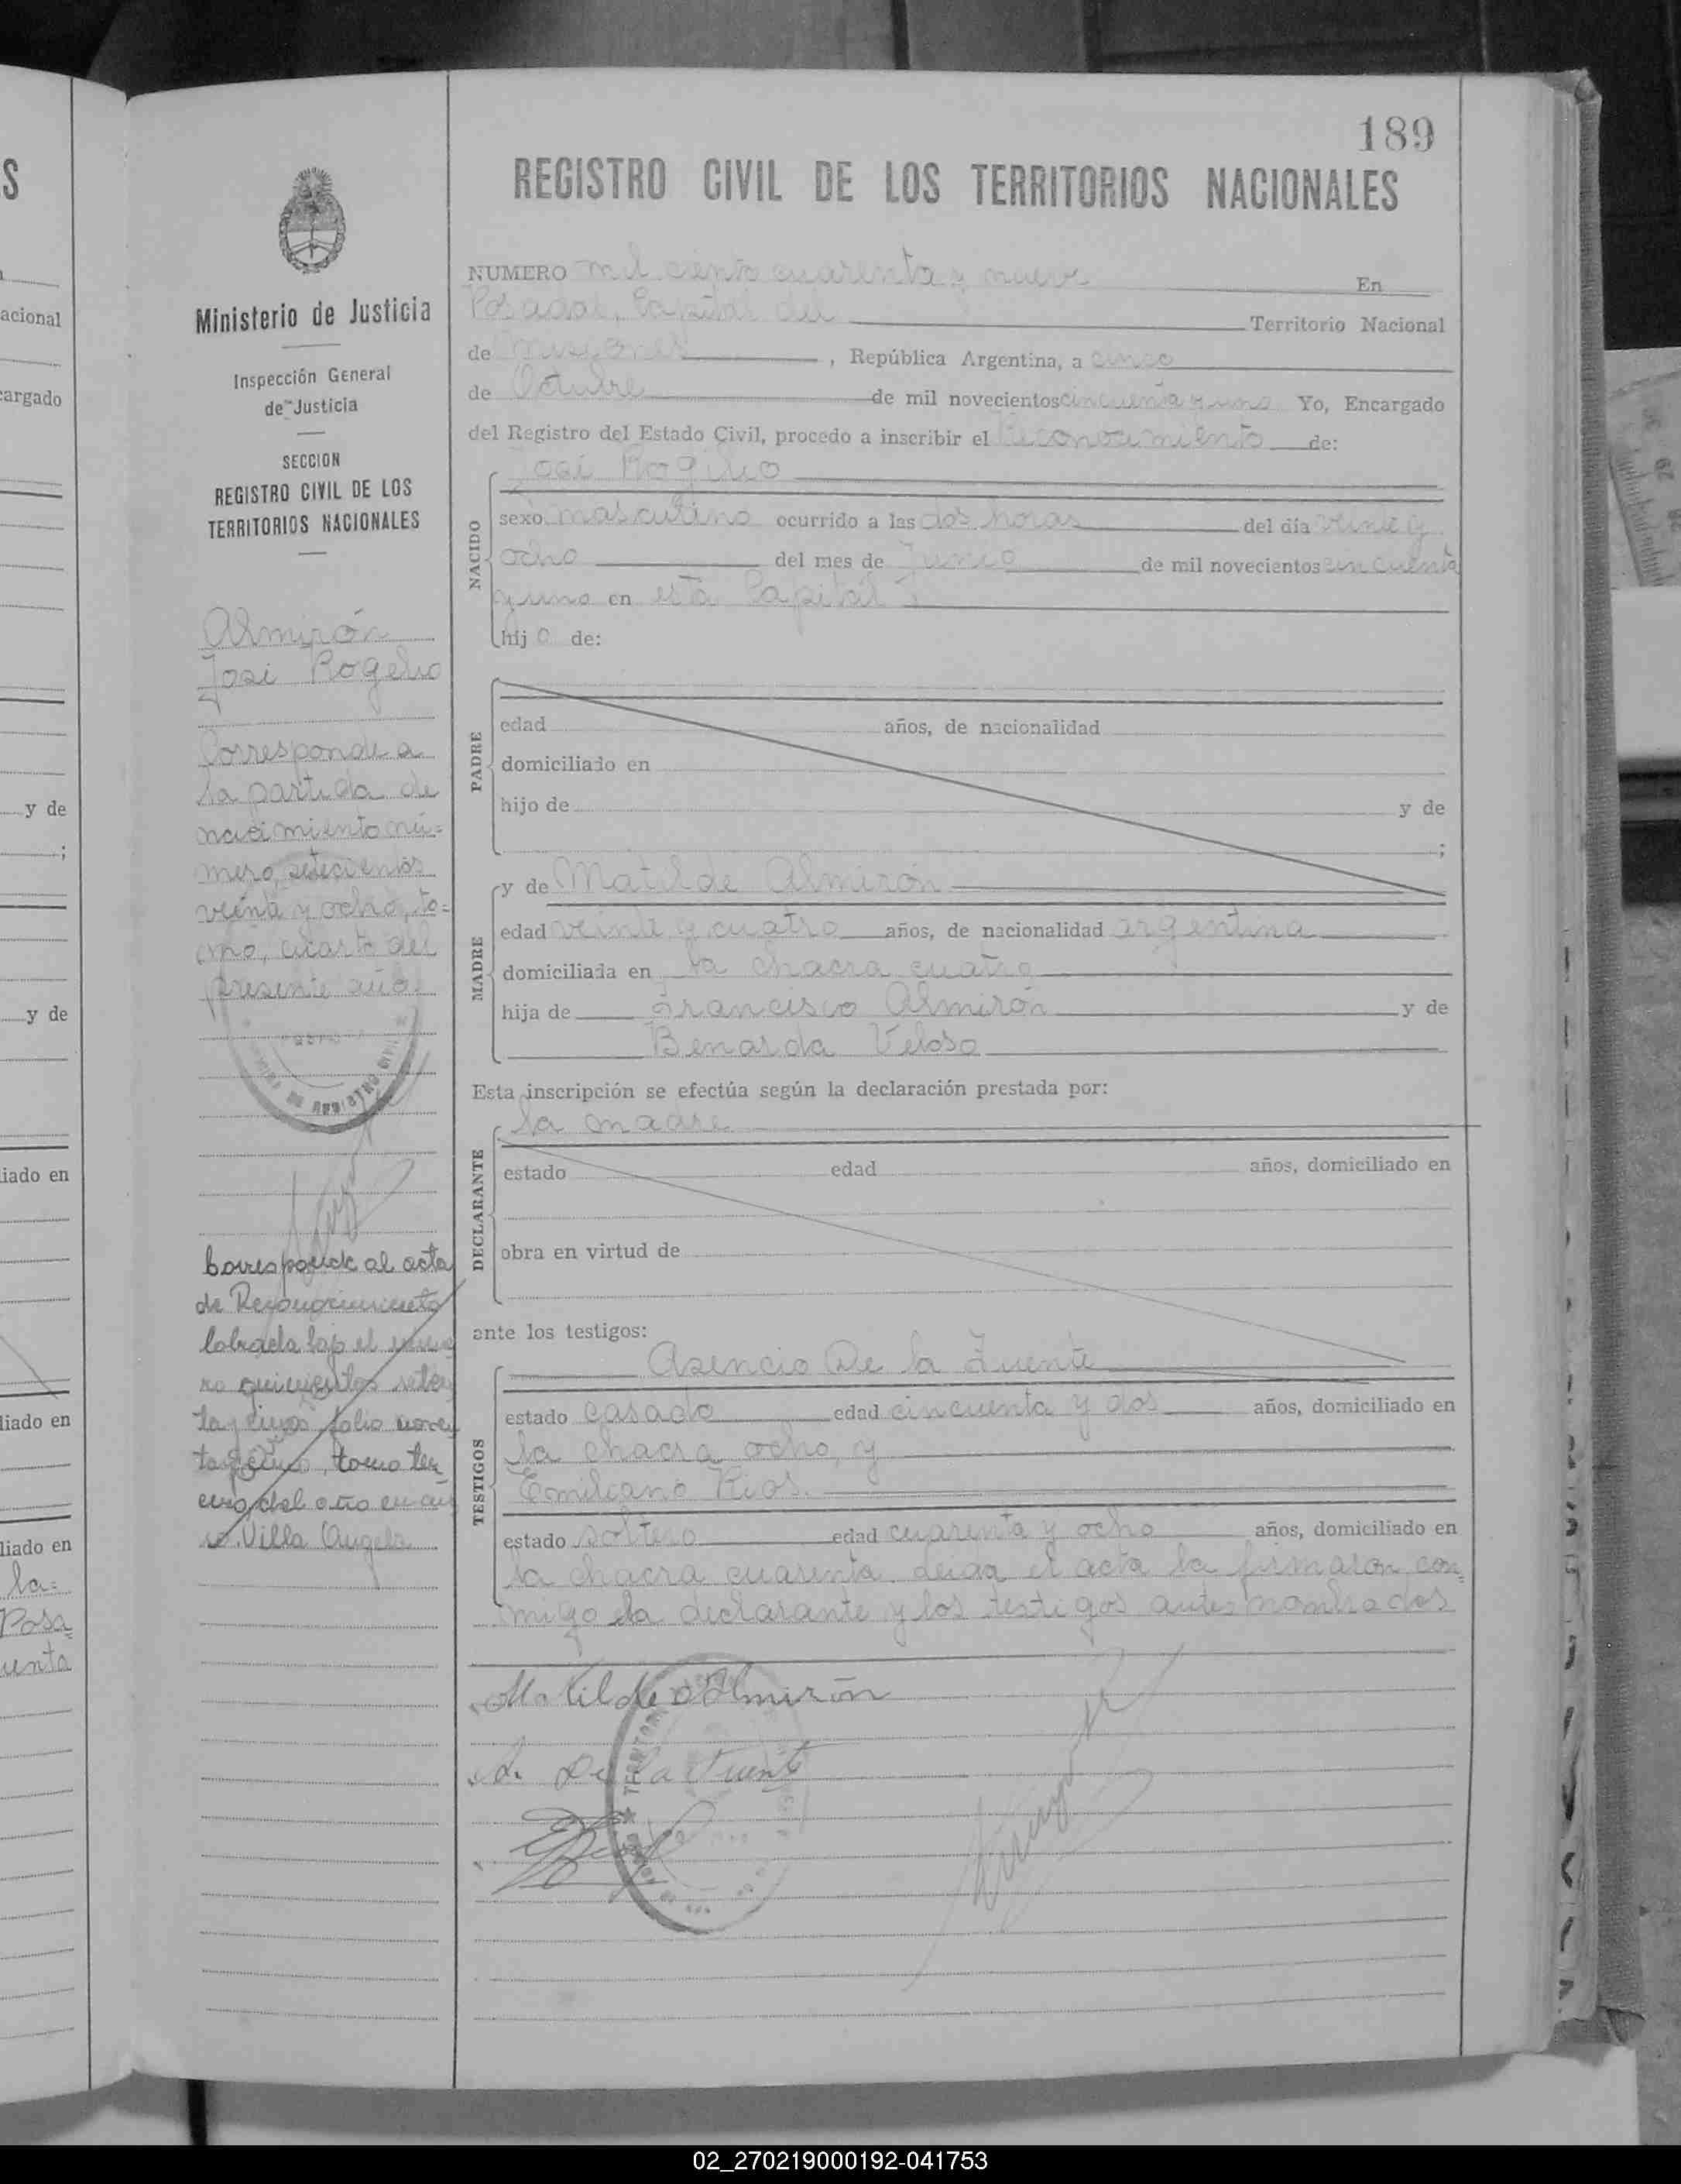 189
REGISTRO CIVIL DE LOS TERRITORIOS NACIONALES
NUMERO mil ciento cuarenta y nueve En
Posadas, Capital del Territorio Nacional
de Misiones, República Argentina, a cinco
de Octubre de mil novecientos cincuenta y uno Yo, Encargado
del Registro del Estado Civil, procedo a inscribir el Reconocimiento de:
José Rogelio
NACIDO
sexo masculino ocurrido a las dos horas del día veinte y
ocho del mes de Junio de mil novecientos cincuenta
y uno en esta Capital
hijo de:
PADRE
edad años, de nacionalidad
domiciliado en
hijo de y de
;
MADRE
y de Matilde Almirón
edad veinte y cuatro años, de nacionalidad argentina
domiciliada en la chacra cuatro
hija de Francisco Almirón y de
Benarda Veloso
Esta inscripción se efectúa según la declaración prestada por:
la madre
DECLARANTE
estado edad años, domiciliado en
obra en virtud de
ante los testigos:
TESTIGOS
Asencio De la Fuente
estado casado edad cincuenta y dos años, domiciliado en
la chacra ocho, y
Emiliano Rios.
estado soltero edad cuarenta y ocho años, domiciliado en
la chacra cuarenta. Leida el acta la firmaron con=
migo la declarante y los testigos antes nombrados
Matilde Almirón
A. De la Fuente
Ministerio de Justicia
Inspección General
de Justicia
SECCION
REGISTRO CIVIL DE LOS
TERRITORIOS NACIONALES
Almirón
José Rogelio
Corresponde a
la partida de
nacimiento nú=
mero, setecientos
veinte y ocho, to=
mo, cuarto del
presente año
Corresponde al acta
de Reconocimiento
labrada bajo el
quinientos
folio
tomo ter
del año en
Villa Angela
S
acional
cargado
y de
;
y de
iado en
liado en
liado en
la=
Posa=
uenta
02_270219000192-041753